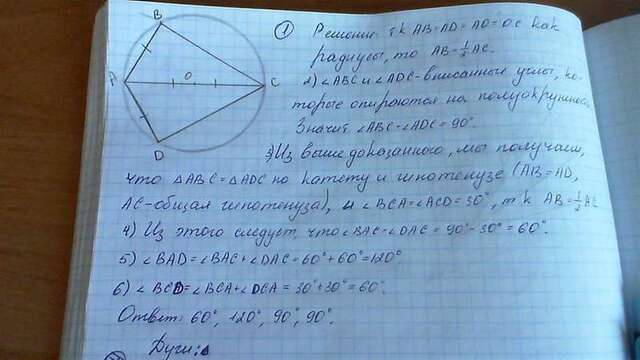 B
A
O
C
D
① Решение: т.к AB=AD=AO=OC как
радиусы, то AB=½AC.
2) ∠ABC и ∠ADC - вписанные углы, ко-
торые опираются на полуокружность.
Значит ∠ABC=∠ADC=90°.
3) Из выше доказанного, мы получаем,
что △ABC=△ADC по катету и гипотенузе (AB=AD,
AC-общая гипотенуза), и ∠BCA=∠ACD=30°, т.к AB=½AC
4) Из этого следует, что ∠BAC=∠DAC=90°-30°=60°.
5) ∠BAD=∠BAC+∠DAC=60°+60°=120°
6) ∠BCD=∠BCA+∠DCA=30°+30°=60°.
Ответ: 60°, 120°, 90°, 90°.
Дуги: